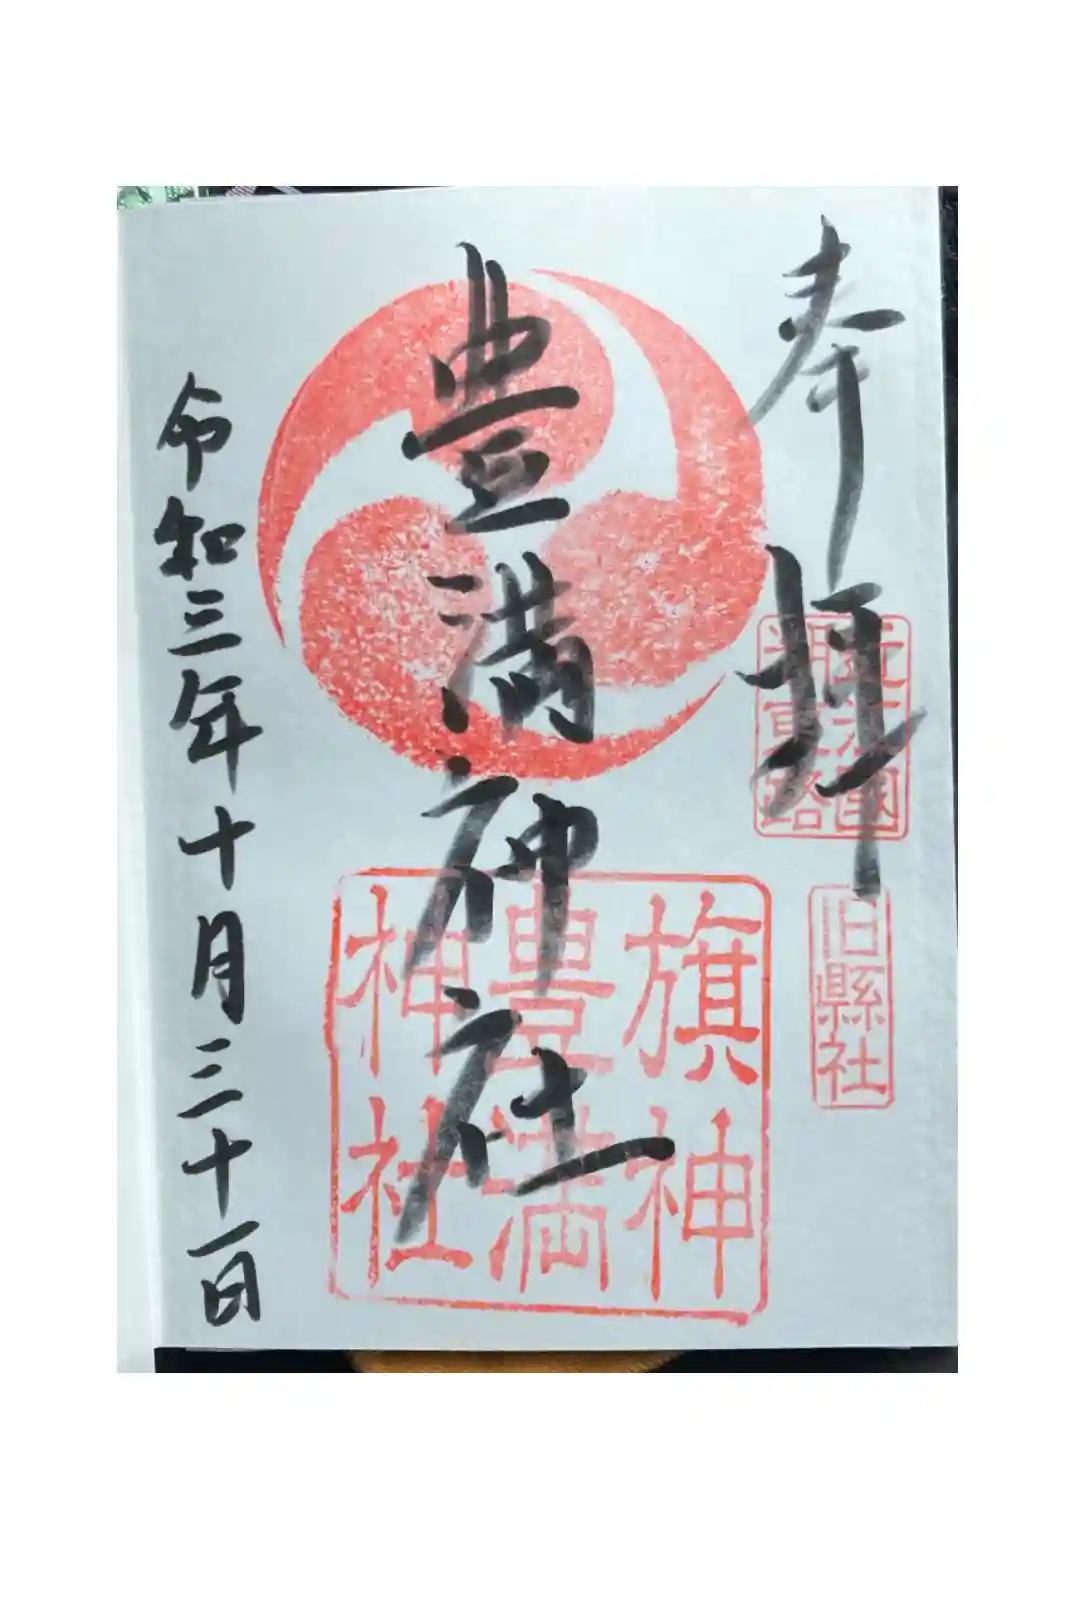 奉拝
近江國
湖東路
旧縣社
豊満神社
旗神
豊満
神社
令和三年十月三十一日